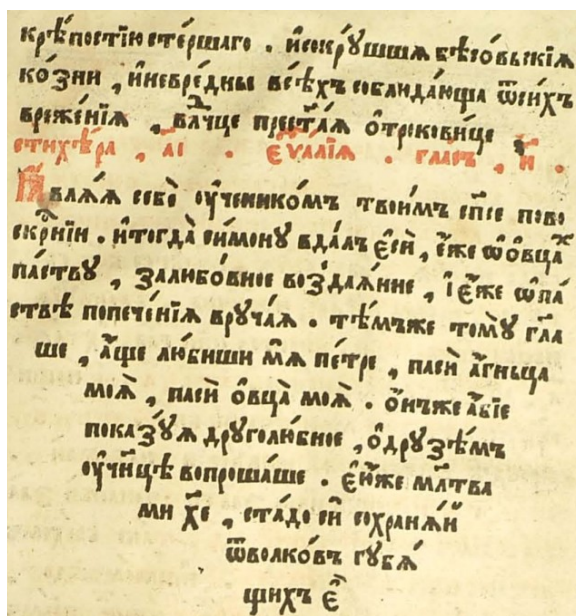 крѣ́постїю сте́ршаго . и҆ сокрꙋ́шшїѧ бѣсо́вьскїѧ
ко́зни , и҆ невре́дны всѣ́хъ соблюда́юща ѿ си́хъ
врежє́нїѧ , влⷣчце прест҃а́ѧ ѻ҆трокови́це
стихѣ́ра , а҃і . є҆ѵⷢ҇алїѧ . гла́съ , и҃ .
Ꙗ҆влѧ́ѧ себѐ ᲂу҆ченико́мъ твои́мъ сп҃се пово
скрⷭ҇нїи . и҆ тогда̀ си́монꙋ вда́лъ є҆сѝ , є҆́же ѡ҆ ѻ҆вца́хъ
па́ствꙋ , за любо́вное воз̾даѧ́нїе , і҆ є҆́же ѡ҆ па́
ствѣ попече́нїѧ врꙋча́ѧ . тѣ́мъже томꙋ̀ гл҃а
ше , а҆́ще лю́биши мѧ̀ пе́тре , пасѝ а҆́гньца
моѧ̀ , пасѝ ѻ҆́вца моѧ̀ . ѻ҆́нъже а҆́бїе
показꙋ́ѧ дрꙋголю́бное , ѻ҆ дрꙋзѣ́мъ
ᲂу҆чн҃цѣ̀ вопроша́ше . є҆ѧ́же мл҃тва
ми хе҃ , ста́до сѝ сохранѧ́й
ѿ волко́въ гꙋбѧ́
щихъ є҆̀